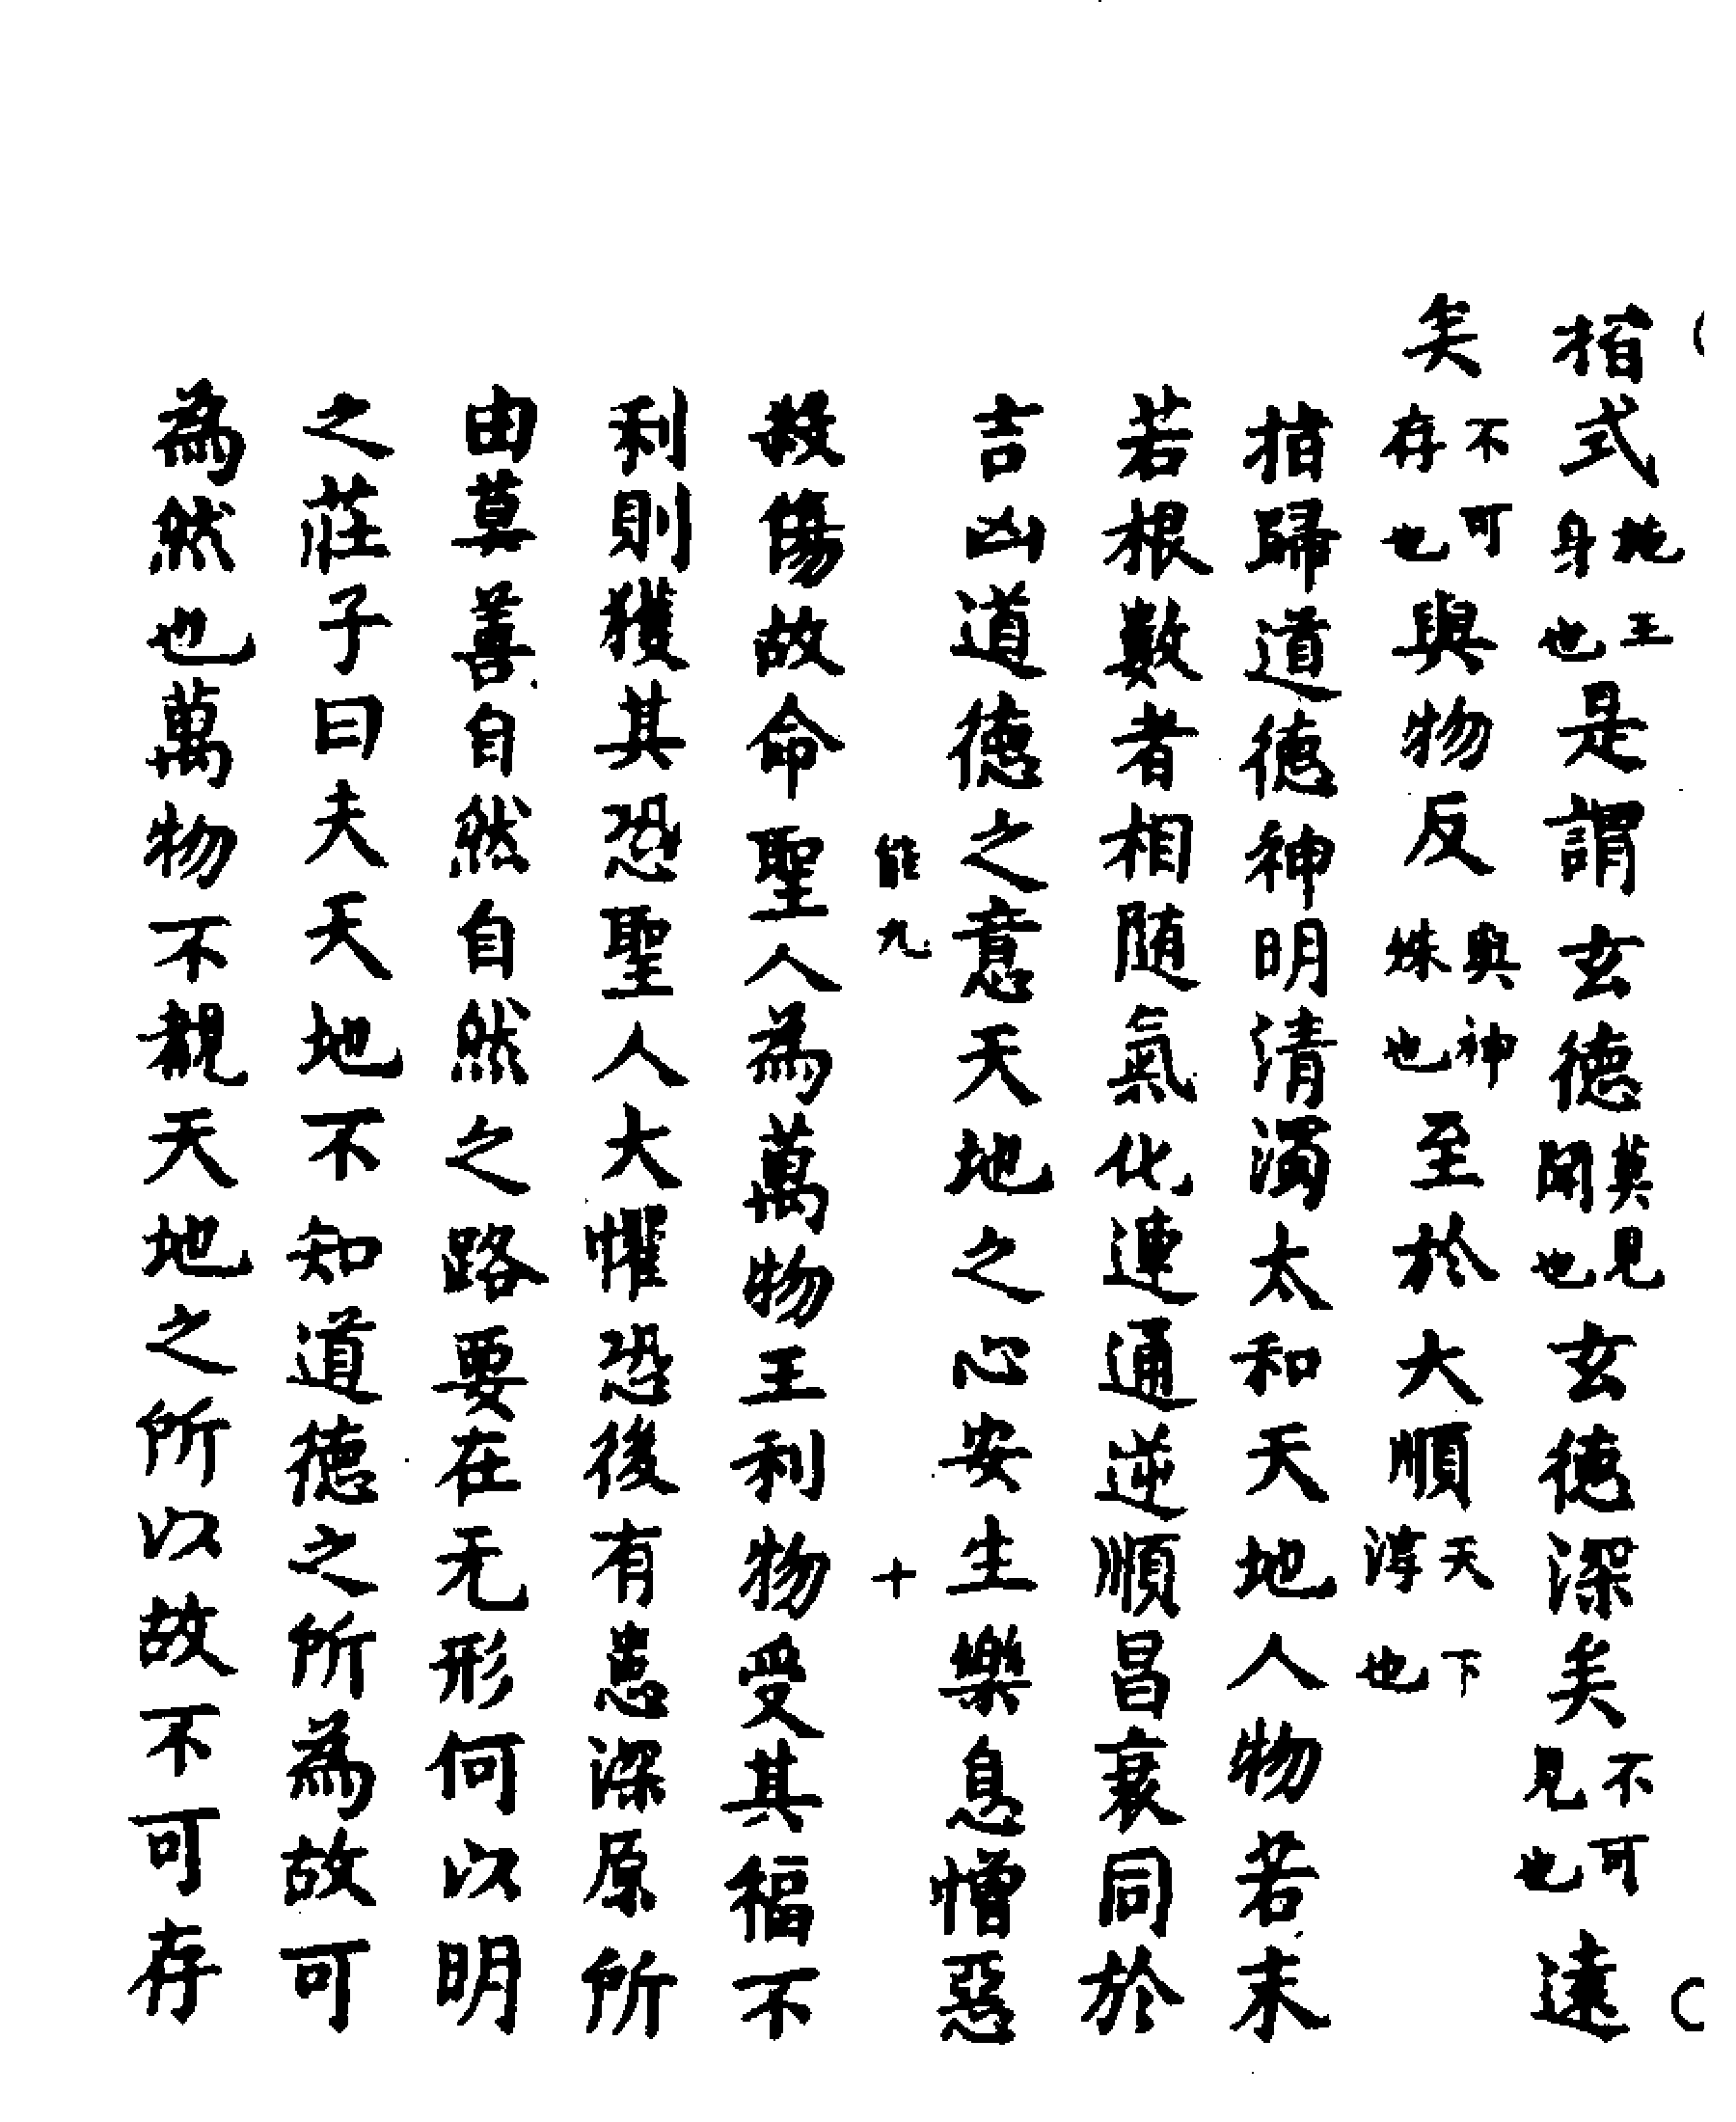 楷式地王身也是謂玄德莫見聞也玄德深矣不可見也遠
矣不可存也與物反與神殊也至於大順天下淳也
指歸道德神明清濁太和天地人物若末
若根數者相随氣化連通逆順昌衰同於
吉凶道德之意天地之心安生樂息憎惡
能九 十
殺傷故命聖人為萬物王利物受其福不
利則獲其恐聖人大懼恐後有患深原所
由莫善自然自然之路要在无形何以明
之莊子曰夫天地不知道德之所為故可
為然也萬物不覩天地之所以故不可存